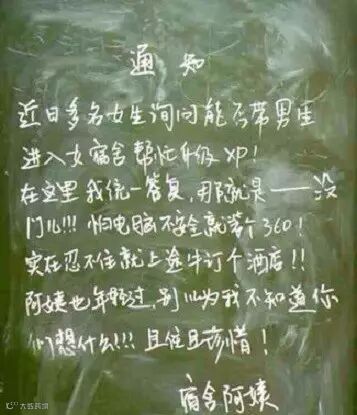 通知
近日多名女生询问能否带男生
进入女宿舍帮忙升级XP!
在这里我统一答复,那就是——没
门儿!!!怕电脑不安全就装个360!
实在忍不住就上途牛订个酒店!!
阿姨也年轻过,别以为我不知道你
们想什么!!!且住且珍惜!
宿舍阿姨
大数跨境